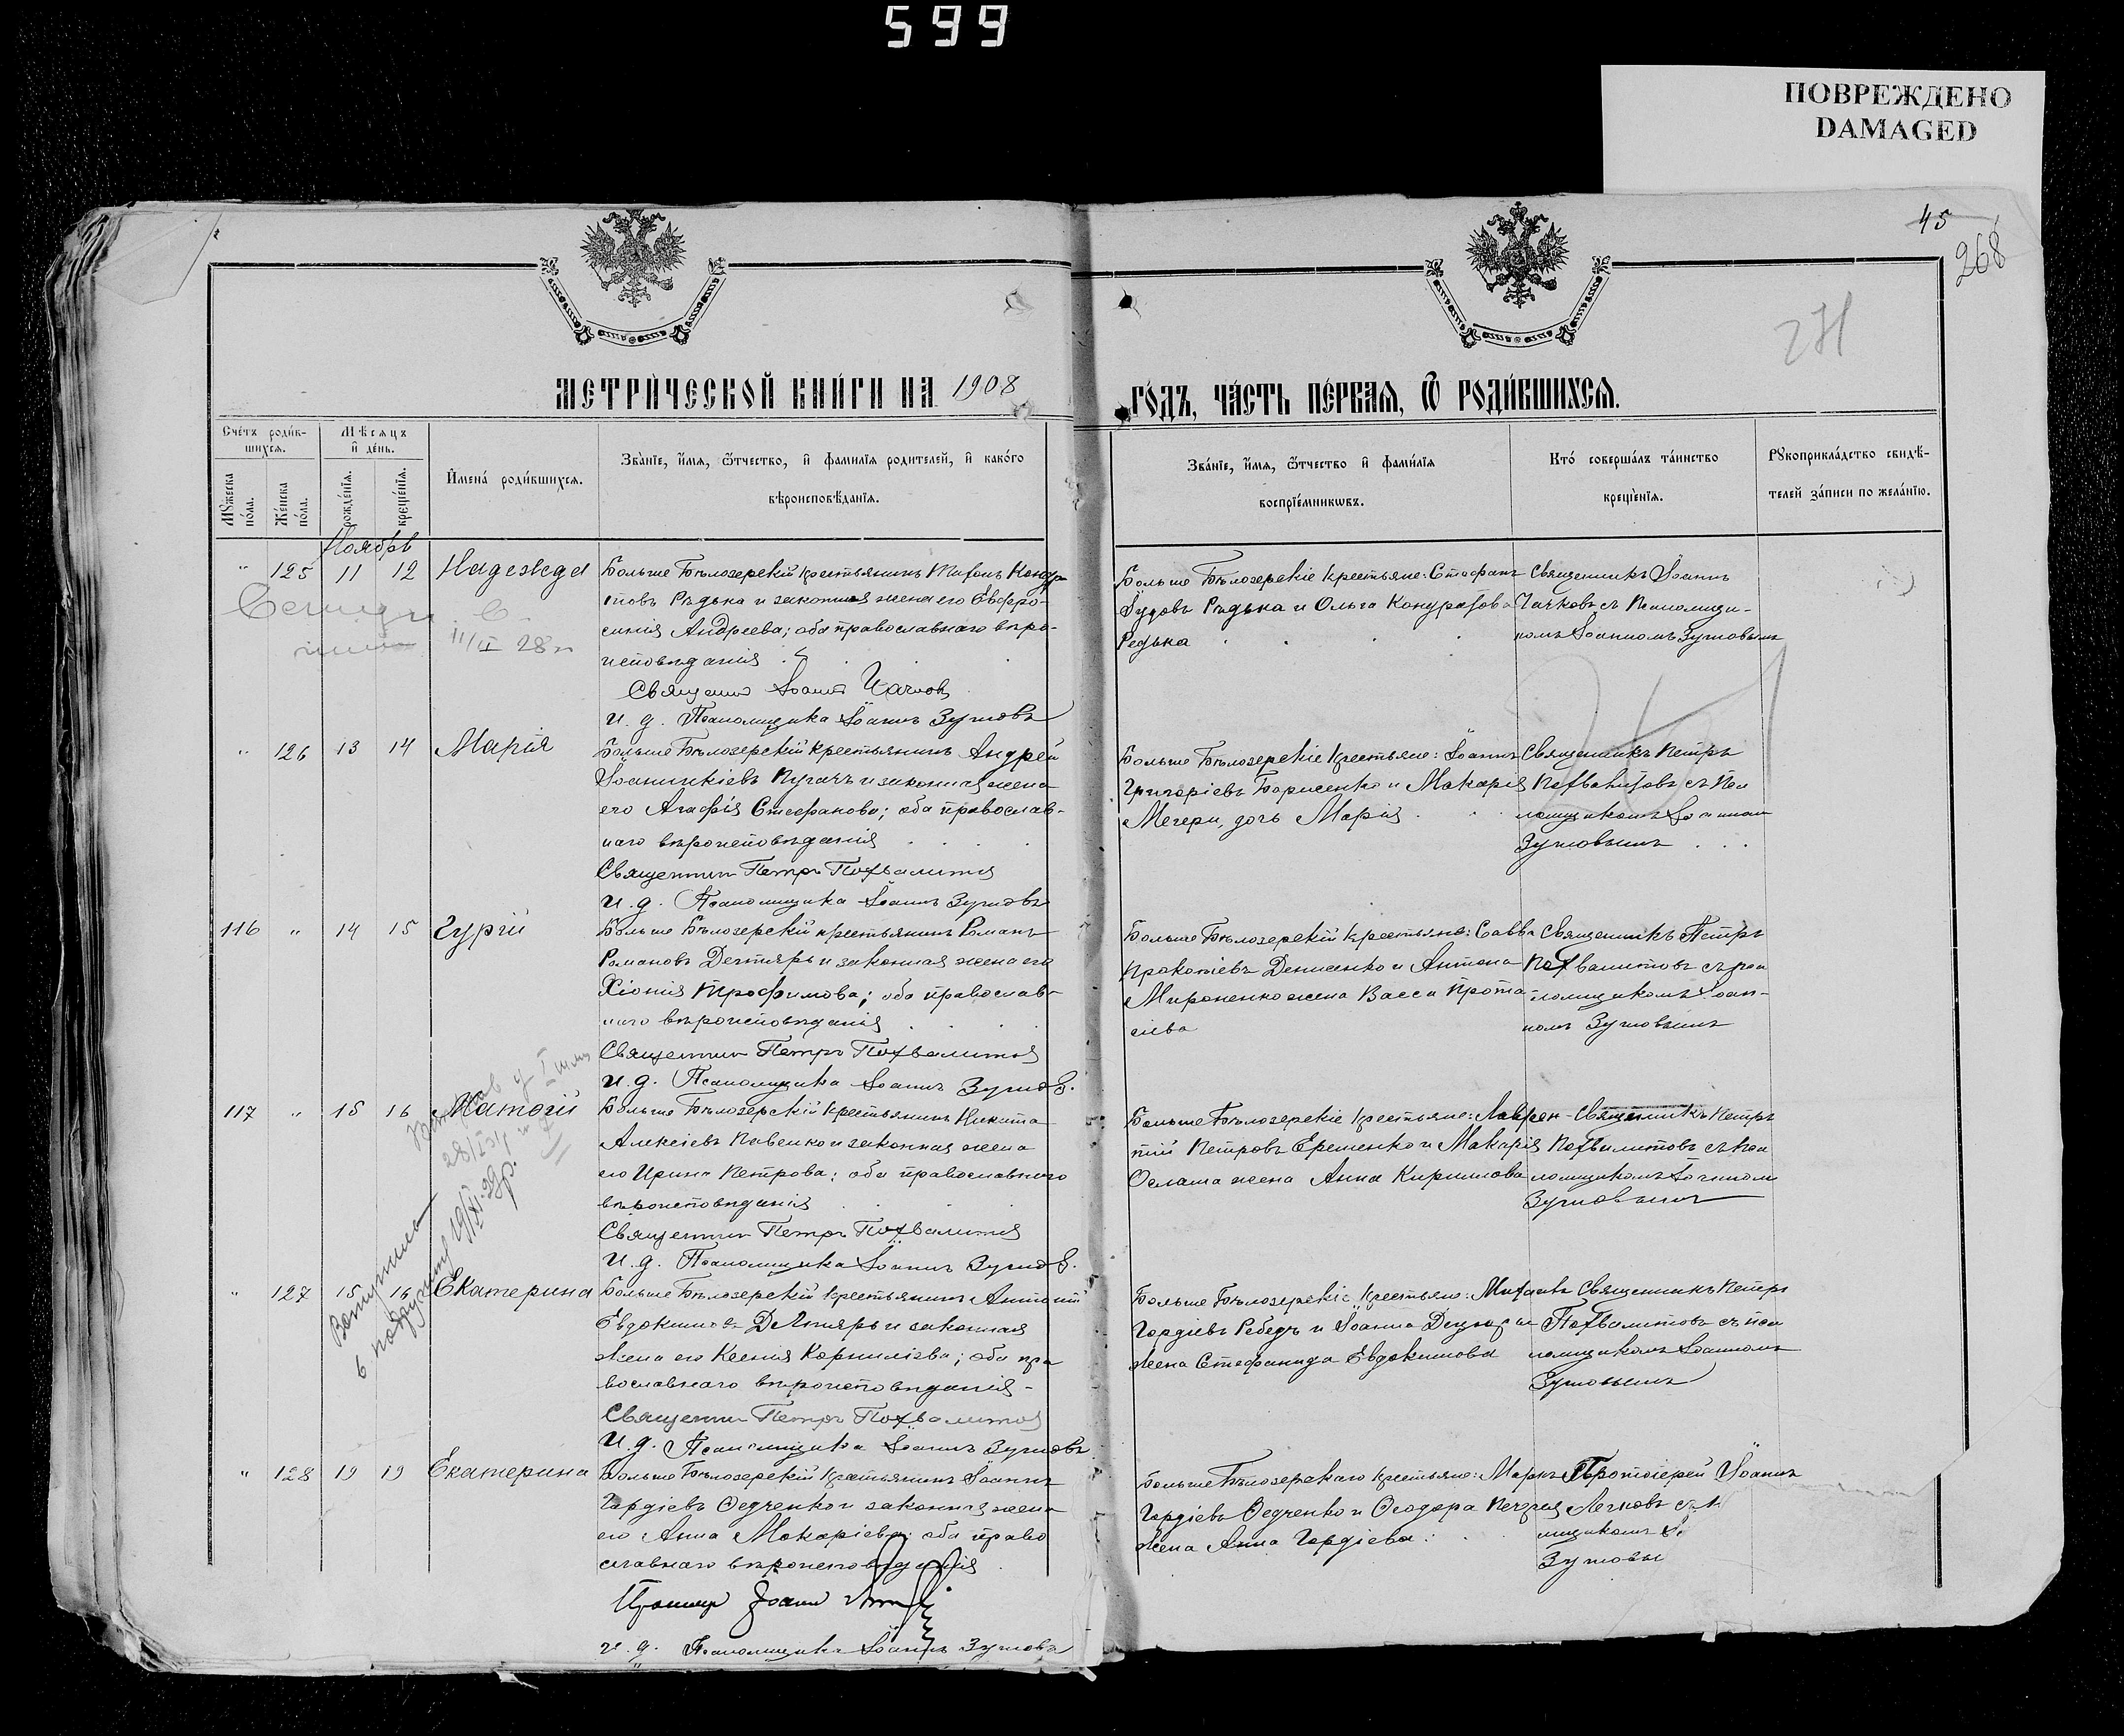 599
ПОВРЕЖДЕНО
DAMAGED
45
268
271
МЕТРИ́ЧЕСКОЙ КНИ́ГИ НА 1908
ГО́ДЪ, ЧА́СТЬ ПЕ́РВАЯ, Ѽ РОДИ́ВШИХСЯ.
Сче́тъ роди́в-
шихся.
Мѣ́сяцъ
и҆ де́нь.
Мꙋ́жеска
по́ла.
Же́нска
по́ла.
рожде́нїя.
креще́нїя.
И҆мена̀ роди́вшихся.
Зва́нїе, и҆́мя, ѻ҆́тчество, и҆ фами́лїя роди́телей, и҆ како́го
вѣроисповѣ́данїя.
Зва́нїе, и҆́мя, ѻ҆́тчество и҆ фами́лїя
воспрїе́мниковъ.
Кто̀ соверша́лъ та́инство
креще́нїя.
Рꙋкоприкла́дство свидѣ́-
телей за́писи по жела́нїю.
Ноябрь
" 125 11 12 Надежда
Больше Бѣлозерскій крестьянинъ
Рѣдька и законная жена его Евфро-
синія Андреева; оба православнаго вѣро-
исповѣданія
Священник Іоаннъ Чачковъ
и. д. Псаломщика Іоаннъ Зутовъ
Больше Бѣлозерскіе крестьяне: Стефанъ
Рѣдька и Ольга
Редька
Священникъ Іоаннъ
Чачковъ съ Псаломщи-
комъ Іоанномъ Зутовымъ
11/II 28
" 126 13 14 Марія
Больше Бѣлозерскій крестьянинъ Андрей
Іоанникіевъ Пугачъ и законная жена
его Агафія Стефанова; оба православ-
наго вѣроисповѣданія
Священник Петръ Похвалитовъ
и. д. Псаломщика Іоаннъ Зутовъ
Больше Бѣлозерскіе крестьяне: Іоаннъ
Григоріевъ Борисенко и Макарія
Мегери, дочь Марія
Священникъ Петръ
Похвалитовъ съ Пса
ломщикомъ Іоанном
Зутовымъ
116 " 14 15 Гурій
Больше Бѣлозерскій крестьянинъ Романъ
Романовъ Дегтярь и законная жена его
Хіонія Трофимова; оба православ-
наго вѣроисповѣданія
Священник Петръ Похвалитовъ
и. д. Псаломщика Іоаннъ Зутовъ.
Больше Бѣлозерскій крестьяне: Савва
Прокопіевъ Денисенко и Антона
Мироненко жена Васса Прота
сіева
Священникъ Петръ
Похвалитовъ съ пса
ломщикомъ Іоан-
номъ Зутовымъ
117 " 15 16 Матѳій
Больше Бѣлозерскій крестьянинъ Никита
Алексіевъ Павенко и законная жена
его Ирина Петрова; оба православнаго
вѣроисповѣданія
Священник Петръ Похвалитовъ
и. д. Псаломщика Іоаннъ Зутовъ.
Больше Бѣлозерскіе крестьяне: Лаврен-
тій Петровъ Еременко и Макарія
жена Анна Кириллова
Священникъ Петръ
Похвалитовъ съ пса
ломщикомъ Іоанном
Зутовымъ
" 127 15 16 Екатерина
Больше Бѣлозерскій крестьянинъ Антоній
Евдокимовъ Дегтярь и законная
жена его Ксенія Корниліева; оба пра
вославнаго вѣроисповѣданія-
Священник Петръ Похвалитовъ
и. д. Псаломщика Іоаннъ Зутовъ
Больше Бѣлозерскіе крестьяне:
Гордіевъ и Іоанна
жена Стефанида Евдокимова
Священникъ Петръ
Похвалитовъ съ пса
ломщикомъ Іоанномъ
Зутовымъ
" 128 19 19 Екатерина
Больше Бѣлозерскій крестьянинъ Іоаннъ
Гордіевъ Ѳедченко и законная жена
его Анна Макаріева; оба право
славнаго вѣроисповѣданія
Іоаннъ
и. д. Псаломщика Іоаннъ Зутовъ
Больше Бѣлозерскаго крестьяне: Маркъ
Гордіевъ Ѳедченко и Ѳеодора
жена Анна Гордіева
Протоіерей Іоаннъ
съ
мщикомъ
Зутовы